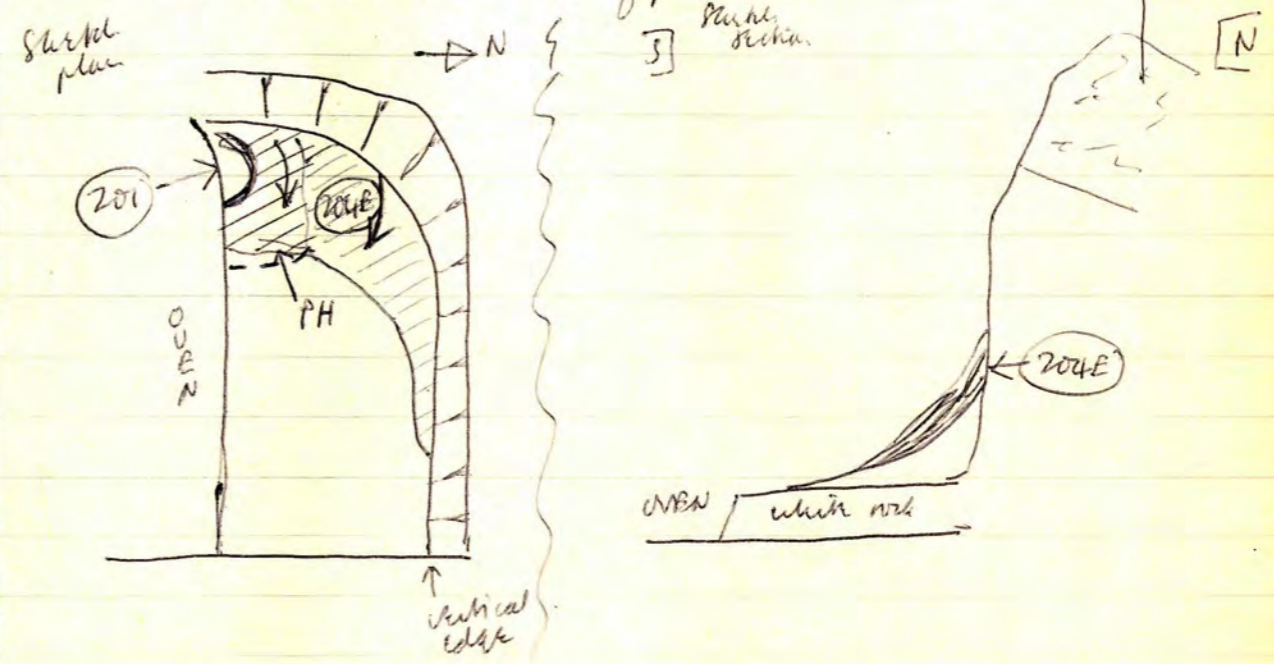 Sketch
plan
N
201
204E
PH
OVEN
vertical
edge
S
Sketch
Section
N
204E
OVEN
white rock